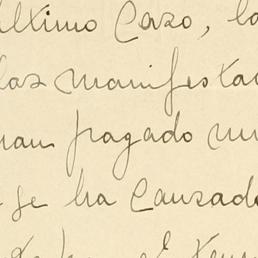 ultimo Caso, la
las manifesta
han pagado mu
se ha Causado